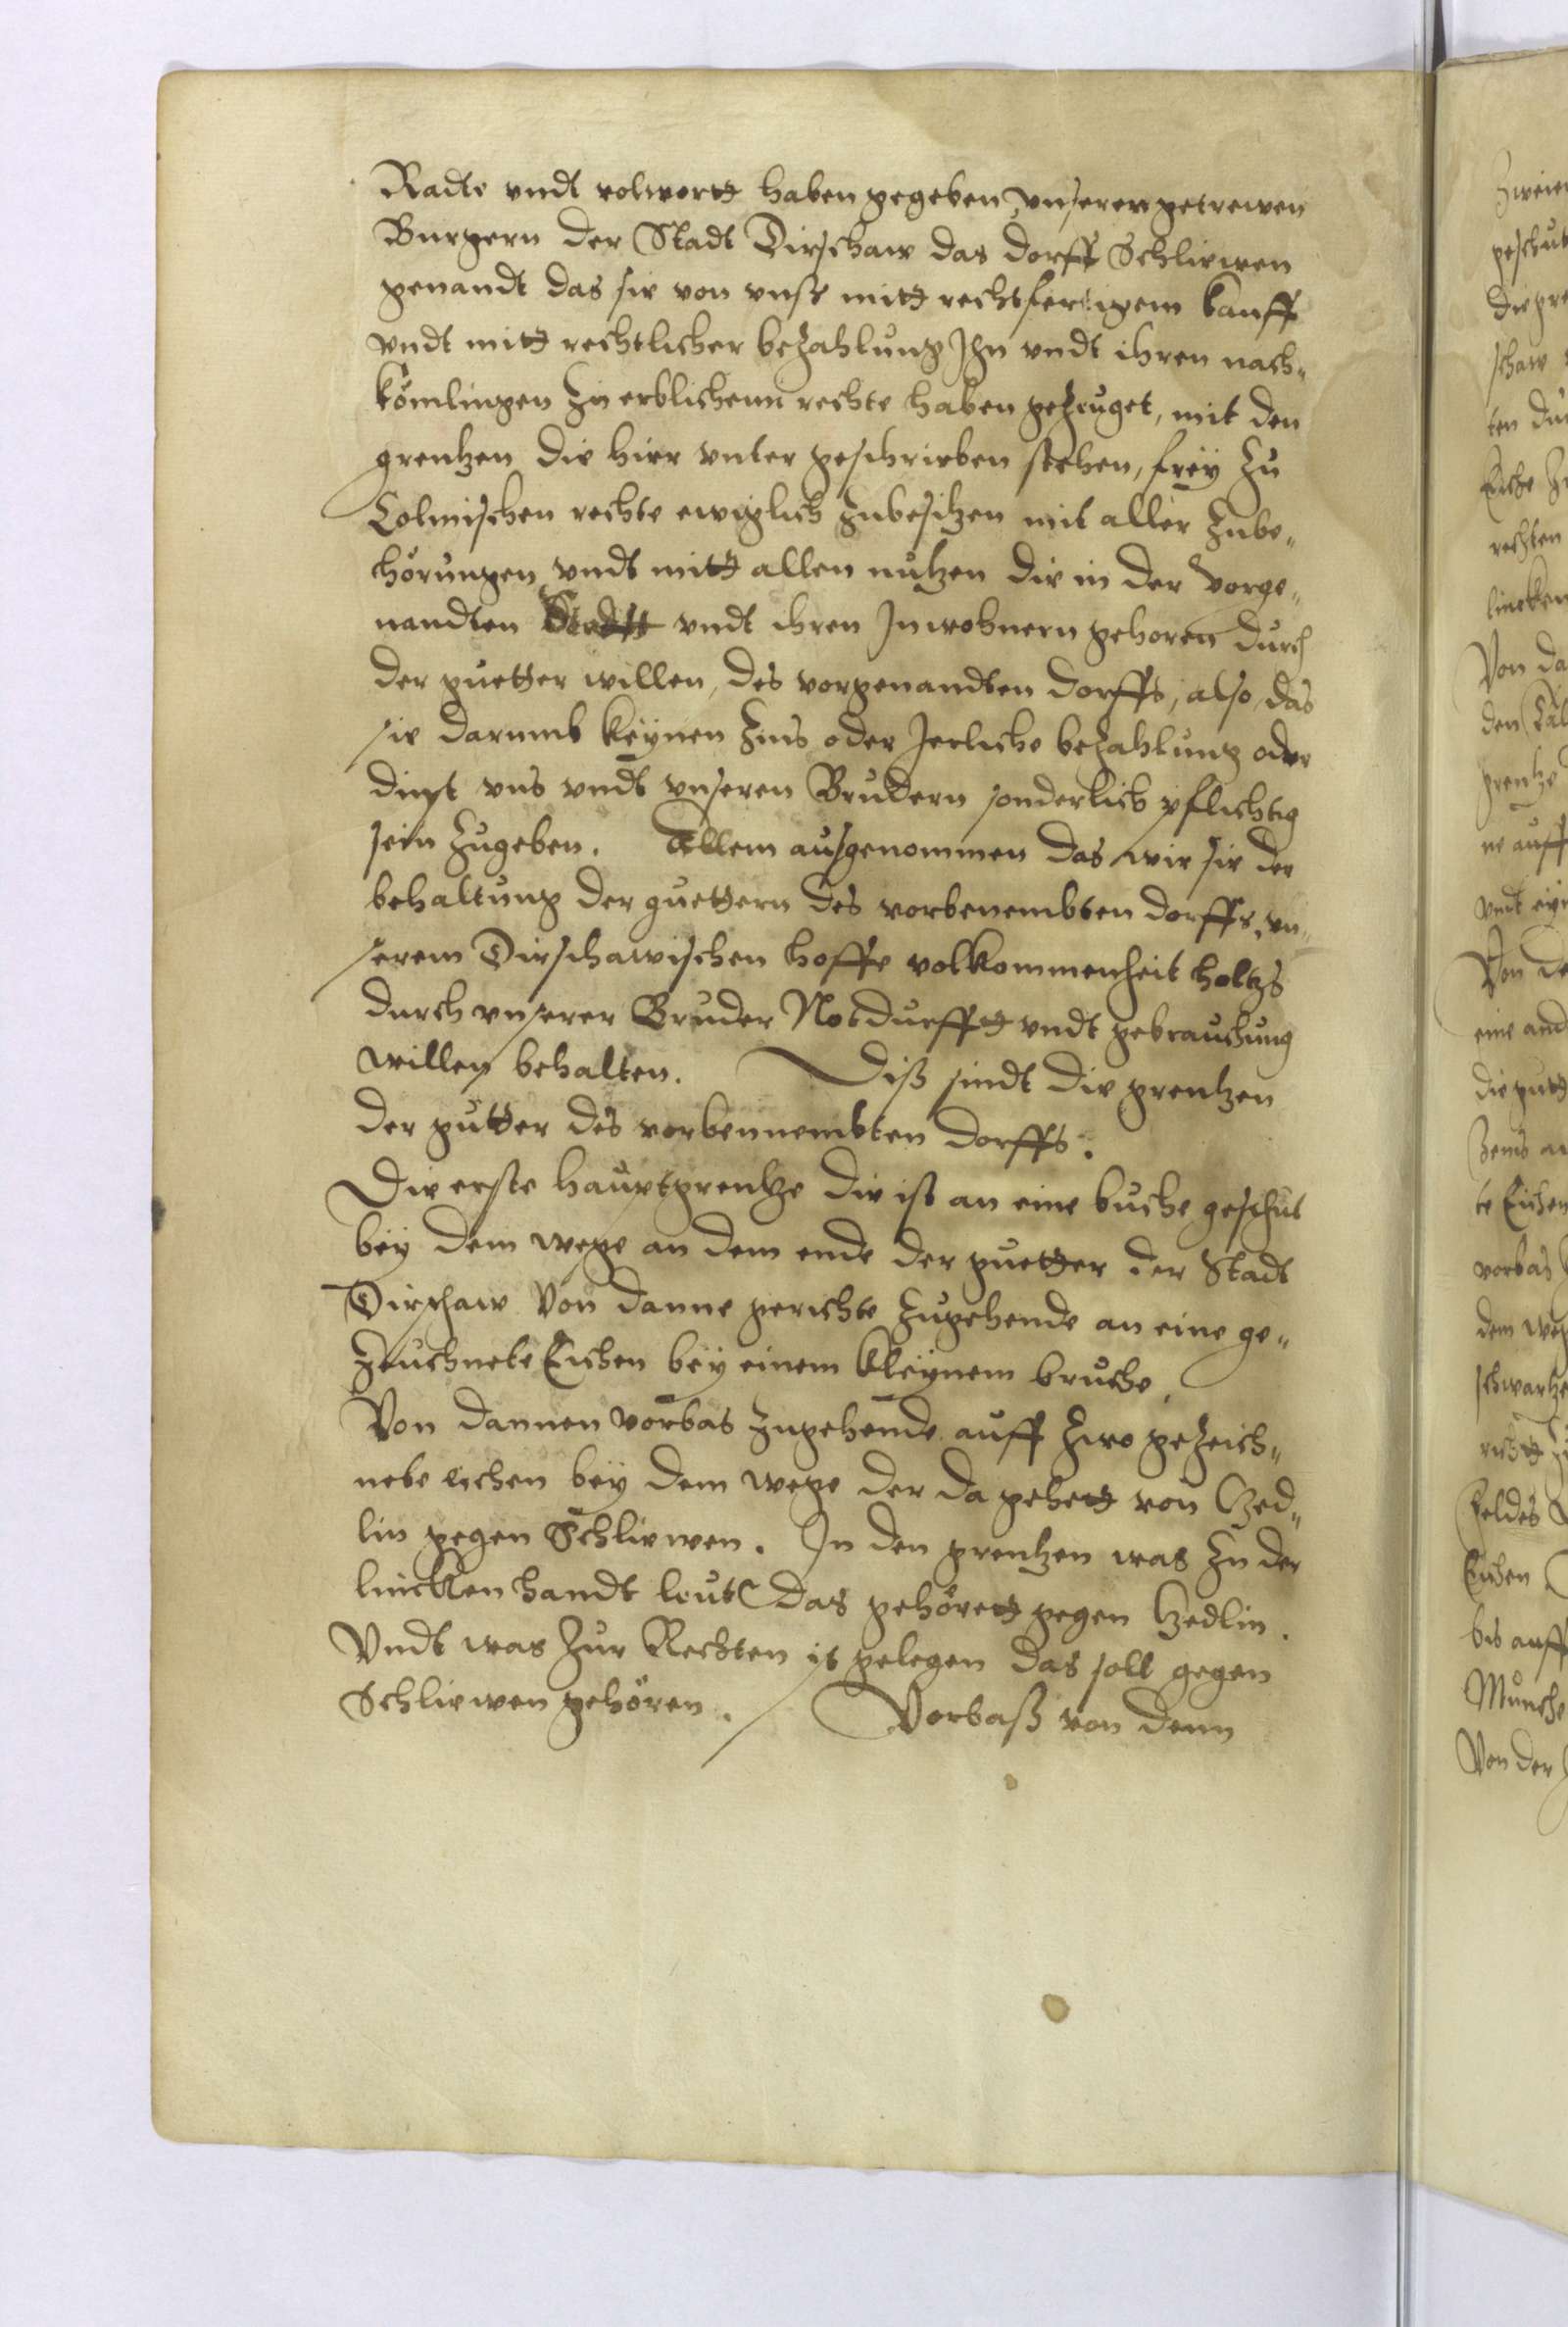 Radte vndt volwortt haben gegeben vnseren getrewen
Burgern der Stadt Dirschaw das dorff Schliewen
genandt das sie von vnß mitt rechtfertigem kauff
vndt mitt rechtlicher bezahlung Ihn vndt ihren nach„
kömlingen zu erblichenn rechte haben gezeuget, mit den
grentzen die hier vnter geschrieben stehen, frey zu
Colmischen rechte ewiglich zubesitzen mit aller zube„
hörungen vndt mitt allen nutzen die in der vorge„
nandten Stadt vndt ihren Inwohnern gehoren durch
der guetter willen, des vorgenandten dorffs, also, das
sie darumb keynen Zins oder Jerliche bezahlung oder
dinst vns vndt vnseren Brudern sonderlich pflichtig
sein zugeben. Allein ausgenommen das wir sie der
behaltung der guettern des vorbenembten dorffs, vn„
serem Dirschawischen hoffe volkommenheit holtzs
durch vnserer Bruder Notdurfft vndt gebrauchung
willen behalten. Diß sindt die grentzen
der gutter des vorbennembten dorffs.
Die erste hauptgrentze die ist an eine buche geschut
bey dem wege an dem ende der guetter der Stadt
Dirschaw Von danne gerichte zugehende an eine ge„
zeuchnete Eichen bey einem kleynem bruche.
Von dannen vorbas zugehende auff zwo gezeich„
nete eichen bey dem wege der da gehett von Czed„
lin gegen Schliewen. In den grentzen was zu der
lincken handt leut das gehörett gegen Czedlin.
Vndt was zur Rechten is gelegen das soll gegen
Schliewen gehören. Vorbaß von denn